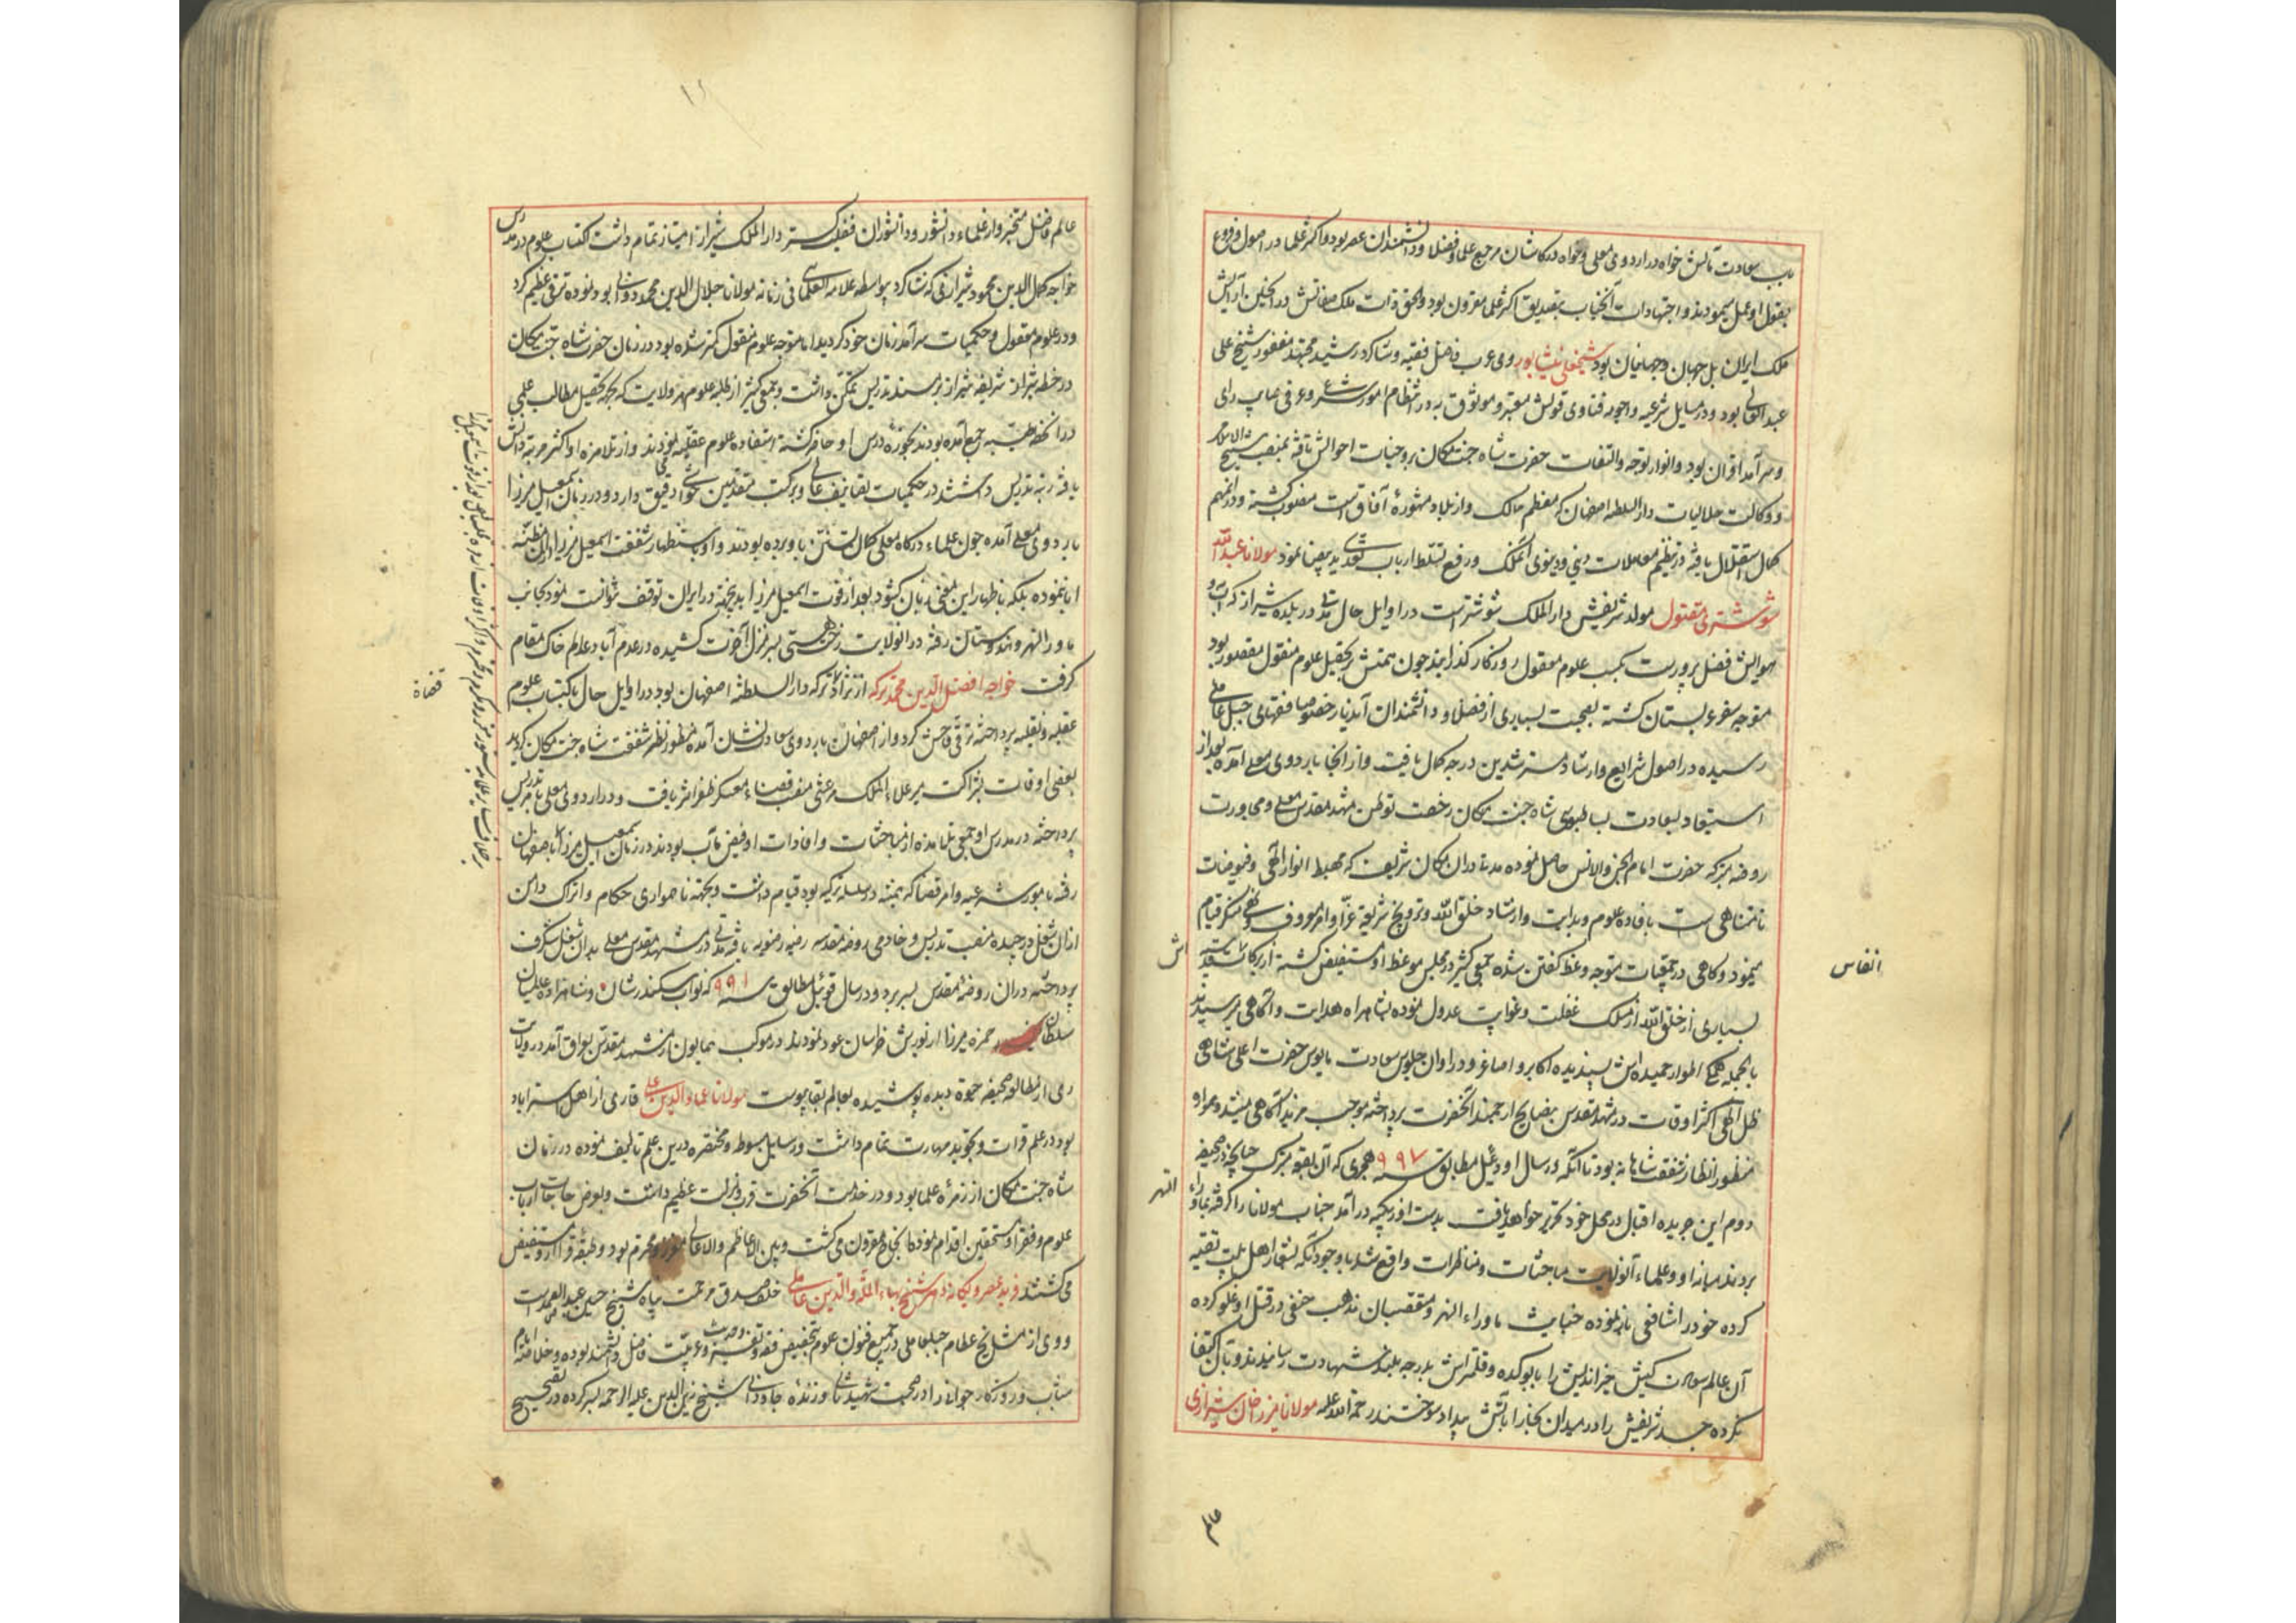 باب سعادت مآبش خواه در اردوی معلی و خواه در کاشان مرجع علما و فضلا و دانشمندان عصر بود و اکثر علما در اصول و فروع
بقول او عمل مینمودند و اجتهادات آنجناب بتصدیق اکثر علما مقرون بود و الحق ذات ملک صفاتش در انجمن آرایش
ملک ایران بل جهان و جهانیان بود شیخعلی منشار وی عرب فاضل فقیه و شاکرد رشید مجتهد مغفور شیخ علی
عبد العالی بود و در مسایل شرعیه و اجوبه فتاوی قولش معتبر و موثوق به در انتظام امور شرع و عرفی صایب رای
و سرآمد اقران بود و انوار توجه و التفات حضرت شاه جنت مکان بر وجنات احوالش تافته بمنصب شیخ الاسلامی
و وکالت حلالیات دار السلطنه اصفهان که معظم ممالک و از بلاد مشهوره آفاق است منصوب کشته و در انمهم
کمال استقلال یافته در تنظیم معاملات دینی و دنیوی آنملک و رفع تسلط ارباب تعدی ید بیضا نمود مولانا عبد الله
شوشتری مقتول مولد شریفش دار الملک شوشتر است در اوایل حال مدتی در بلده شیراز که آب و
هوایش فضل پرورست بکسب علوم معقول روزکار کذرانید چون همتش بر تحصیل علوم منقول مقصور بود
متوجه سفر عربستان کشته بصحبت بسیاری از فضلا و دانشمندان آندیار خصوصا فقهای جبل عامل
رسیده در اصول شرایع و ارشاد مسترشدین درجه کمال یافت و از آنجا باردوی معلی آمده بعد از
استسعاد بسعادت بساطبوسی شاه جنت مکان رخصت توطن مشهد مقدس معلی و مجاورت
روضه متبرکه حضرت امام الجن والانس حاصل نموده مدتها در ان مکان شریف که مهبط انوار الهی و فیوضات
نامتناهی ست بافاده علوم و هدایت و ارشاد خلق الله و ترویج شریعة غرا و امر معروف و نهی منکر قیام
مینمود و کاهی در جمعیات متوجه وعظ کفتن شده جمعی کثیر در مجلس موعظه او مستفیض کشته از برکات
انفاس
اش
بسیاری از خلق الله از مسلک غفلت و غوایت عدول نموده بشاهراه هدایت و آکاهی میرسیدند
بالجمله همکی اطوار حمیده اش پسندیده اکابر و اصاغر و در اوان جلوس سعادت مانوس حضرت اعلی شاهی
ظل الهی اکثر اوقات در مشهد مقدس بنصایح ارجمند آنحضرت پرداخته موجب مزید آکاهی میشد و همواره
منظور انظار شفقت شاهانه بود تا آنکه در سال اودئیل مطابق سنه ۹۹۷ هجری که آن بقعه متبرکه چنانچه در صحیفه
دوم این جریده اقبال در محل خود تحریر خواهد یافت بدست اوزبکیه در آمد جناب مولانا را کرفته بماوراء
النهر
بردند میانه او و علماء آنولایت مباحثات و مناظرات واقع شد با وجود آنکه بشعار اهل بیت تقیه
کرده خود را شافعی باز نموده خباثت ماوراء النهر و متعصبان مذهب حنفی در قتل او غلو کرده
آن عالم سعادت کیش خیراندیش را بابوکده و قلمتراش بدرجه بلند شهادت رسانیدند و بآن اکتفا
نکرده جسد شریفش را در میدان بخارا بآتش بیداد سوختند رحمة الله علیه مولانا میرزا جان شیرازی
عالم
عالم فاضل متبحر و از علماء دانشور و دانشوران فضیلت کستر دار الملک شیراز امتیاز تمام داشت اکتساب علوم در مدرس
خواجه جمال الدین محمود شیرازی که شاکرد بواسطه علامة العلمائی فی زمانه مولانا جلال الدین محمد دوانی بود نموده ترقی عظیم کرد
و در علوم معقول و حکمیات سرآمد زمان خود کردید اما متوجه علوم منقول کمتر شده بود در زمان حضرت شاه جنت مکان
در خطه شیراز شریفه شیراز بر مسند تدریس تمکن داشت و جمعی کثیر از طلبه علوم هر ولایت که بجهة تحصیل مطالب علمی
در آنخطه طیبه جمع آمده بودند بحوزه درس او حاضر کشته استفاده علوم عقلیه نمودند و از تلامذه او اکثر مرتبه دانش
یافته رتبه تدریس داشتند در حکمیات تصانیف عالی و بر کتب متقدمین حواشی دقیق دارد و در زمان اسمعیل میرزا
باردوی معلی آمده چون علماء درکاه معلی کمان تسنن باو برده بودند و او باستظهار شفقت اسمعیل میرزا از ان مظنه
ابا ننموده بلکه باظهار این معنی زبان کشود بعد از فوت اسمعیل میرزا بدینجهته در ایران توقف نتوانست نمود بجانب
ماوراء النهر و هندوستان رفته در انولایت رخت هستی بسرمنزل آخرت کشیده در عدم آباد عالم خاک مقام
کرفت خواجه افضل الدین محمد ترکه از نژاد ترکه دار السلطنه اصفهان بود در اوایل حال باکتساب علوم
عقلیه و نقلیه پرداخته ترقی فاحش کرد و از اصفهان باردوی سعادت نشان آمده منظور نظر شفقت شاه جنت مکان کردید
قضاة
بعضی اوقات بشراکت میر علاء الملک مرعشی منصب قضاء معسکر ظفر اثر یافت و در اردوی معلی بامر تدریس
پرداخته در مدرس او جمعی تلامذه از مباحثات و افادات او فیض یاب بودند در زمان اسمعیل میرزا باصفهان
رفته بامور شرعیه و امر قضا که همیشه در سلسله ترکه بود قیام داشت و بجهته ناهمواری حکام و اتراک دامن
از ان شغل درچیده منصب تدریس و خادمی روضه مقدسه رضیه رضویه یافته مدتی در مشهد مقدس معلی بدان شغل شکرف
پرداخته در ان روضه مقدس بسر برد و در سال قوئیل مطابق سنه ۹۹۱ که نواب سکندرشان و شاهزاده عالمیان
سلطان حمزه میرزا از یورش خراسان عود نمودند در موکب همایون از مشهد مقدس بعراق آمد در ولایت
ری از مطالعه صحیفه حیوة دیده پوشیده بعالم بقا پیوست مولانا عماد الدین علی قاری از اهل استراباد
بود در علم قرات و تجوید مهارت تمام داشت و رسایل مبسوط و مختصره درین علم تالیف نموده در زمان
شاه جنت مکان از زمره علما بود و در خدمت آنحضرت قرب و منزلت عظیم داشت و بعرض حاجات ارباب
علوم و فقرا و مستحقین اقدام نموده بانجاح مقرون می کشت و بین الاعاظم والاعالی معزز و محترم بود و طبقه قرا از و مستفیض
می کشتند فرید عصر و یکانه دهر شیخ بهاء المله والدین عاملی خلف صدق مرحمت پناه شیخ حسین عبد الصمد است
و وی از مشایخ عظام جبلعاملی در جمیع فنون علوم بتخصیص فقه و تفسیر و حدیث و عربیت فاضل دانشمند بوده و خلاصه ایام
شباب و روزکار جوانی را در صحبت شهید ثانی و زنده جاودانی شیخ زین الدین علیه الرحمه بسر کرده در تصحیح